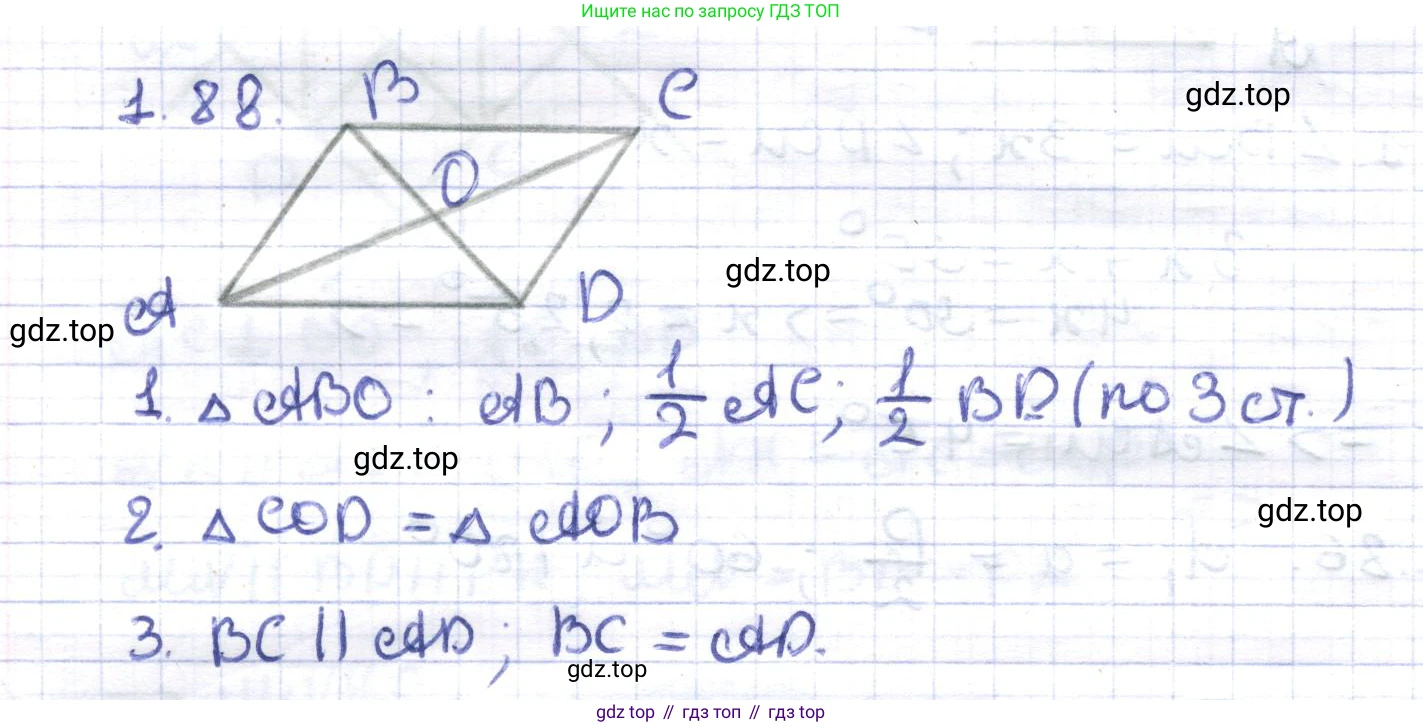 Ищите нас по запросу ГДЗ ТОП
1.88.
B
C
gdz.top
O
gdz.top
A
D
gdz.top
1. △ ABO : AB ; 1/2 AC; 1/2 BD (по 3 ст.)
gdz.top
2. △ COD = △ AOB
gdz.top
3. BC || AD; BC = AD.
gdz.top
gdz top // гдз топ // гдз top